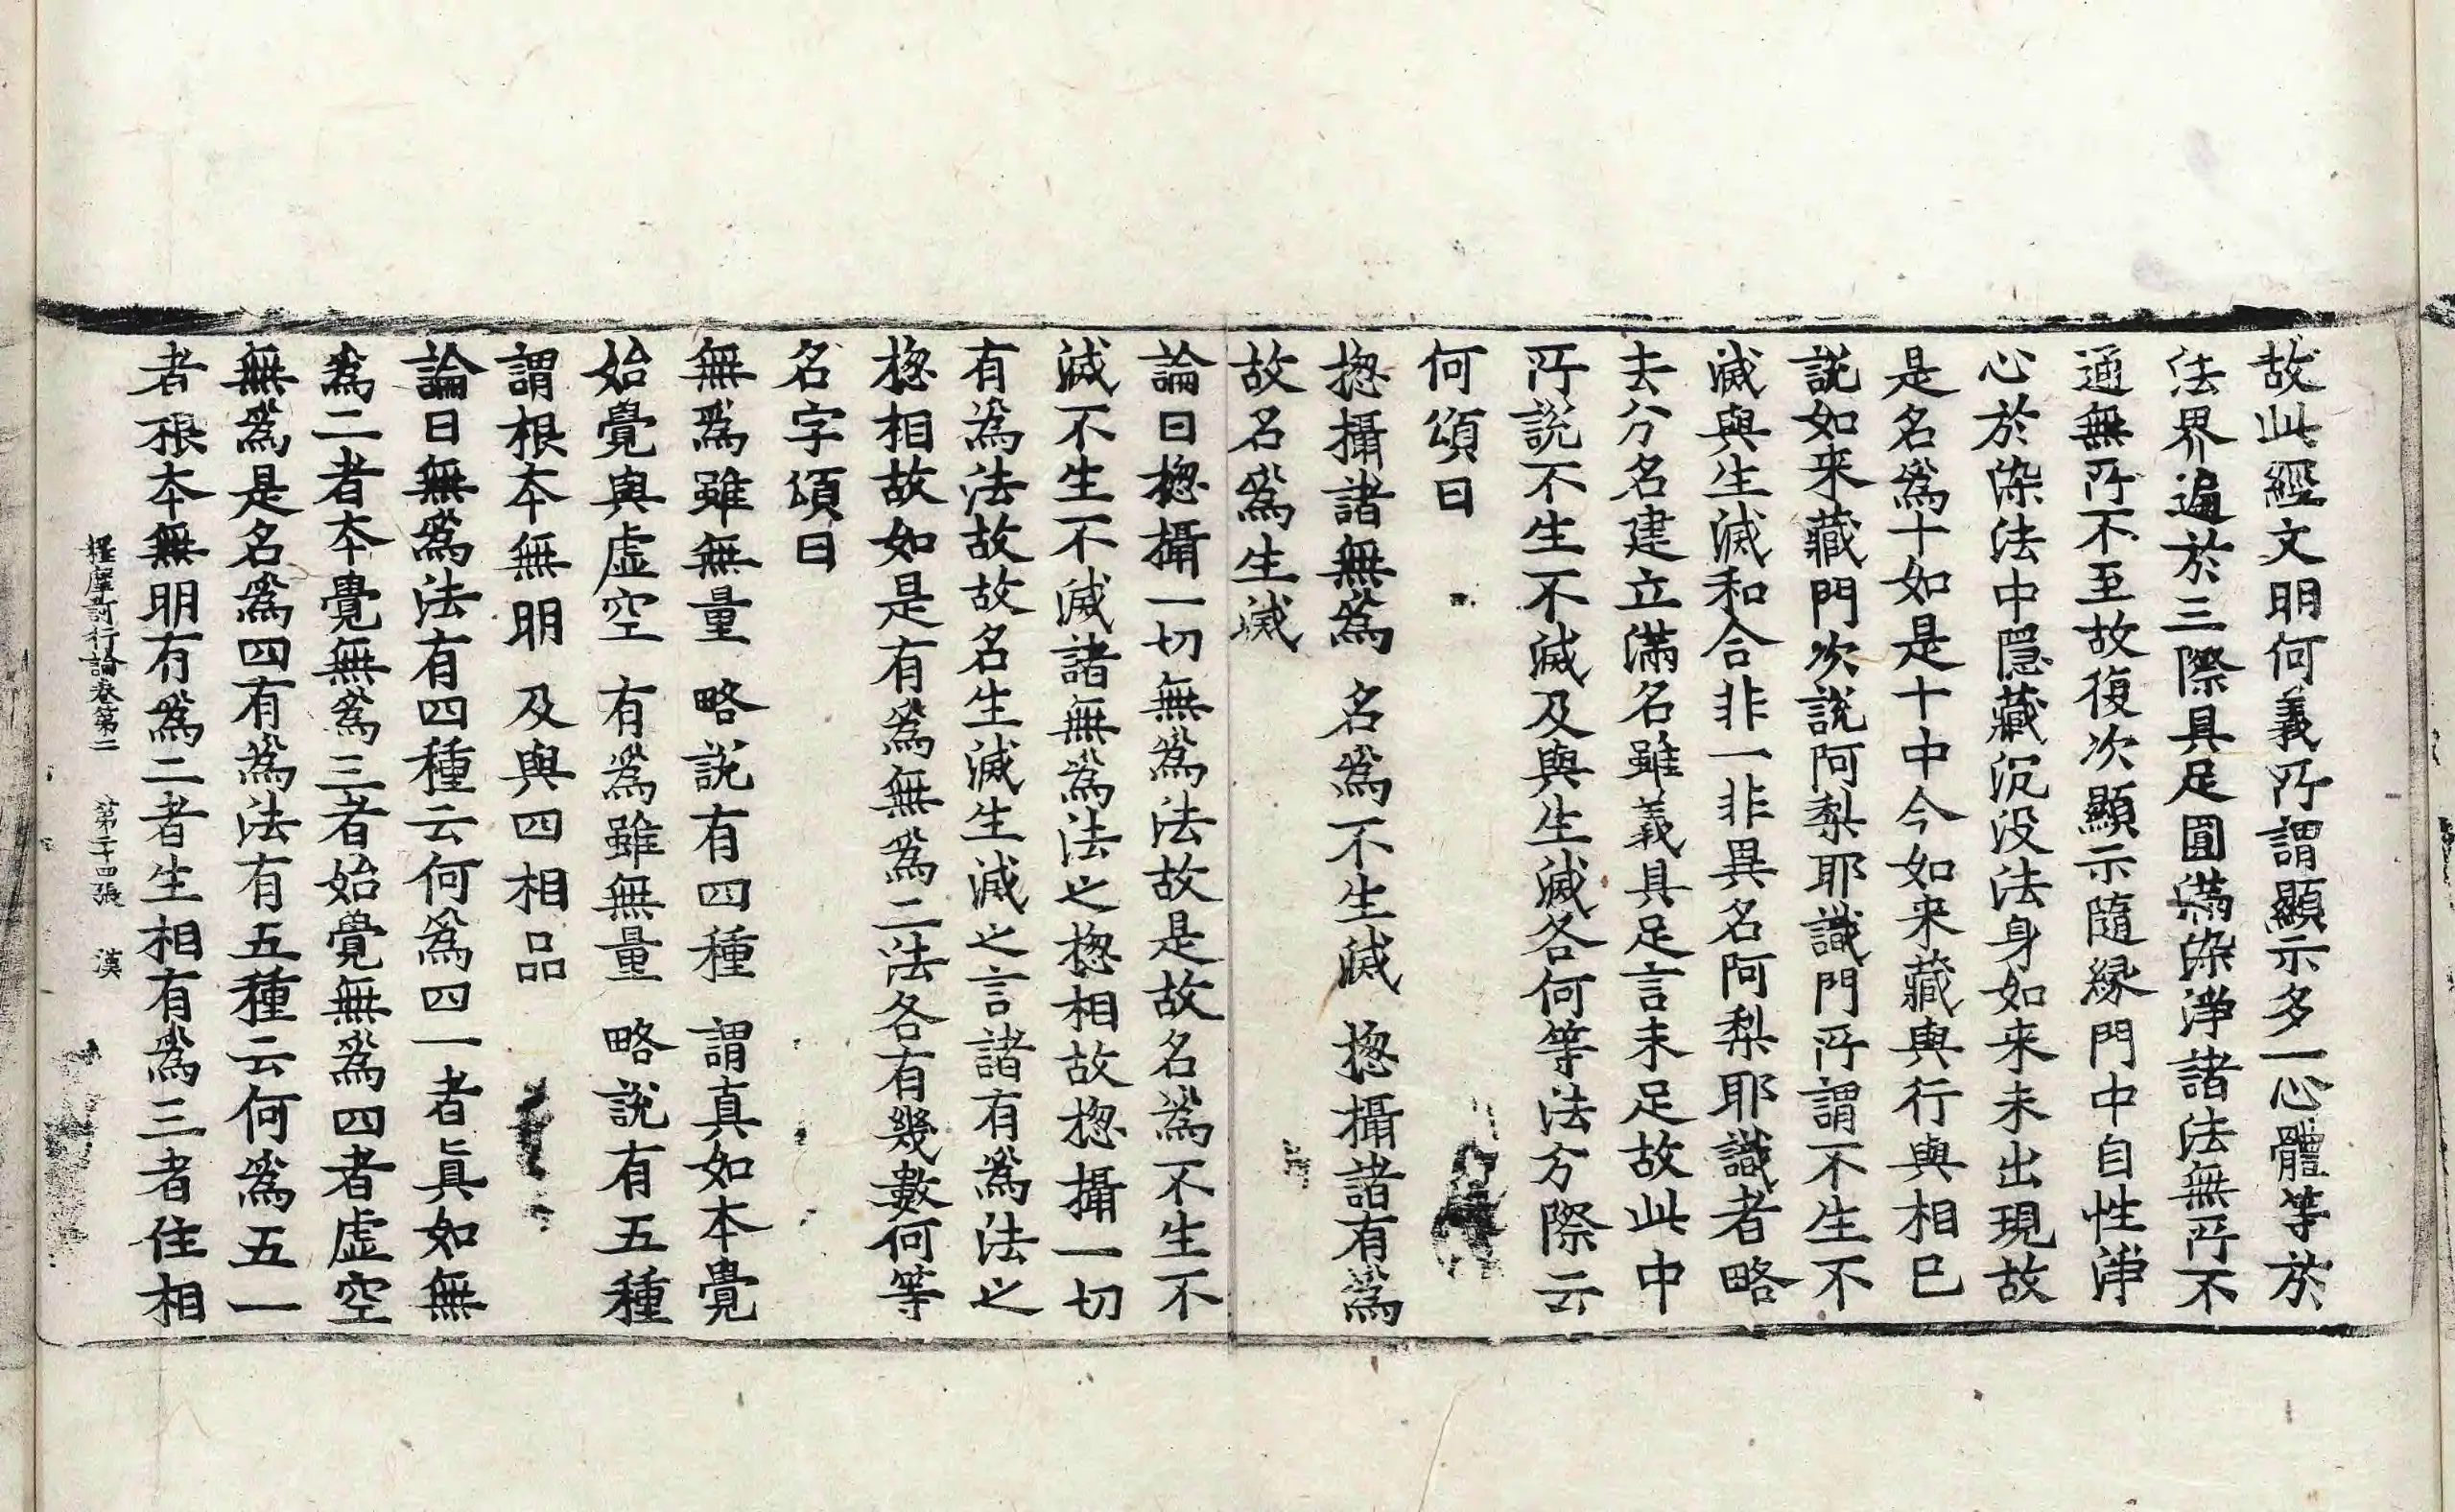 故此經文明何義所謂顯示多一心體等於
法界遍於三際具足圓滿染淨諸法無所不
通無所不至故復次顯示隨緣門中自性淨
心於染法中隱藏沉没法身如来未出現故
是名爲十如是十中今如来藏與行與相已
說如来藏門次說阿梨耶識門所謂不生不
滅與生滅和合非一非異名阿梨耶識者略
去分名建立滿名雖義具足言未足故此中
所說不生不滅及與生滅各何等法分際云
何頌曰
揔攝諸無爲 名爲不生滅 揔攝諸有爲
故名爲生滅
論曰揔攝一切無爲法故是故名爲不生不
滅不生不滅諸無爲法之揔相故揔攝一切
有爲法故故名生滅生滅之言諸有爲法之
揔相故如是有爲無爲二法各有幾數何等
名字頌曰
無爲雖無量 略說有四種 謂真如本覺
始覺與虛空 有爲雖無量 略說有五種
謂根本無明 及與四相品
論曰無爲法有四種云何爲四一者眞如無
爲二者本覺無爲三者始覺無爲四者虛空
無爲是名爲四有爲法有五種云何爲五一
者根本無明有爲二者生相有爲三者住相
釋摩訶衍論卷第二 第二十四張 漢